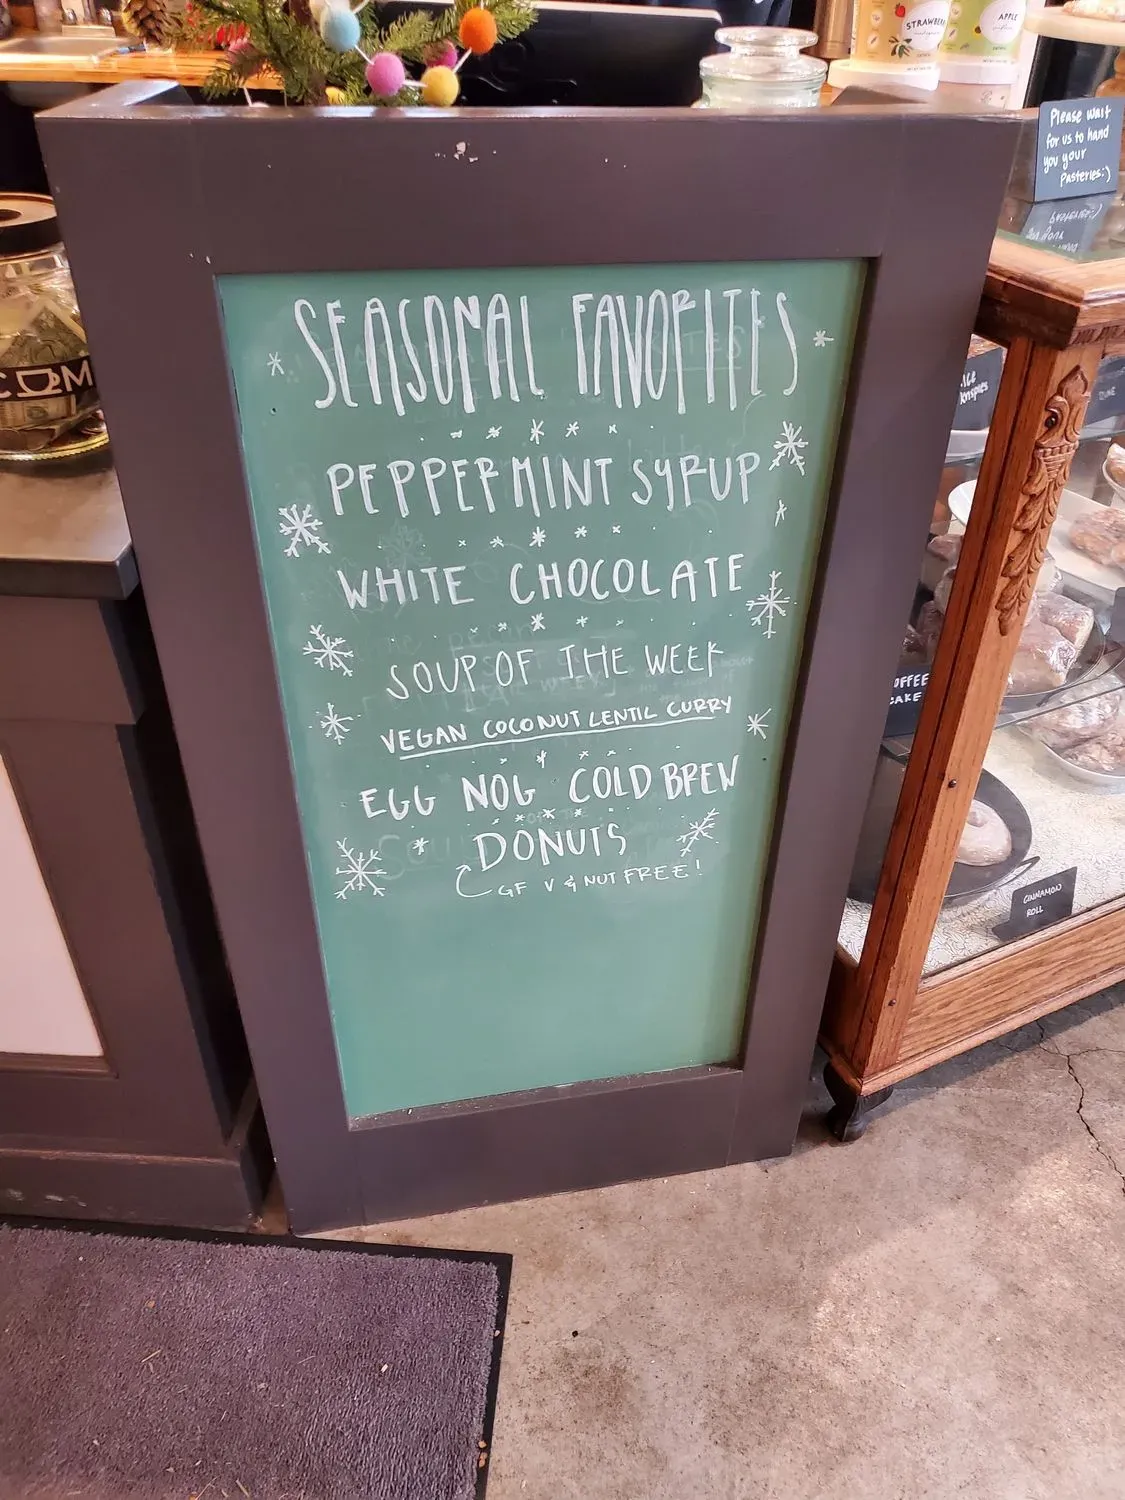 SEASONAL FAVORITES
PEPPERMINT SYRUP
WHITE CHOCOLATE
SOUP OF THE WEEK
VEGAN COCONUT LENTIL CURRY
EGG NOG COLD BREW
DONUTS
GF V & NUT FREE!
STRAWBERRY
APPLE
Please wait
for us to hand
you your
Pasteries:)
COFFEE
CAKE
CINNAMON
ROLL